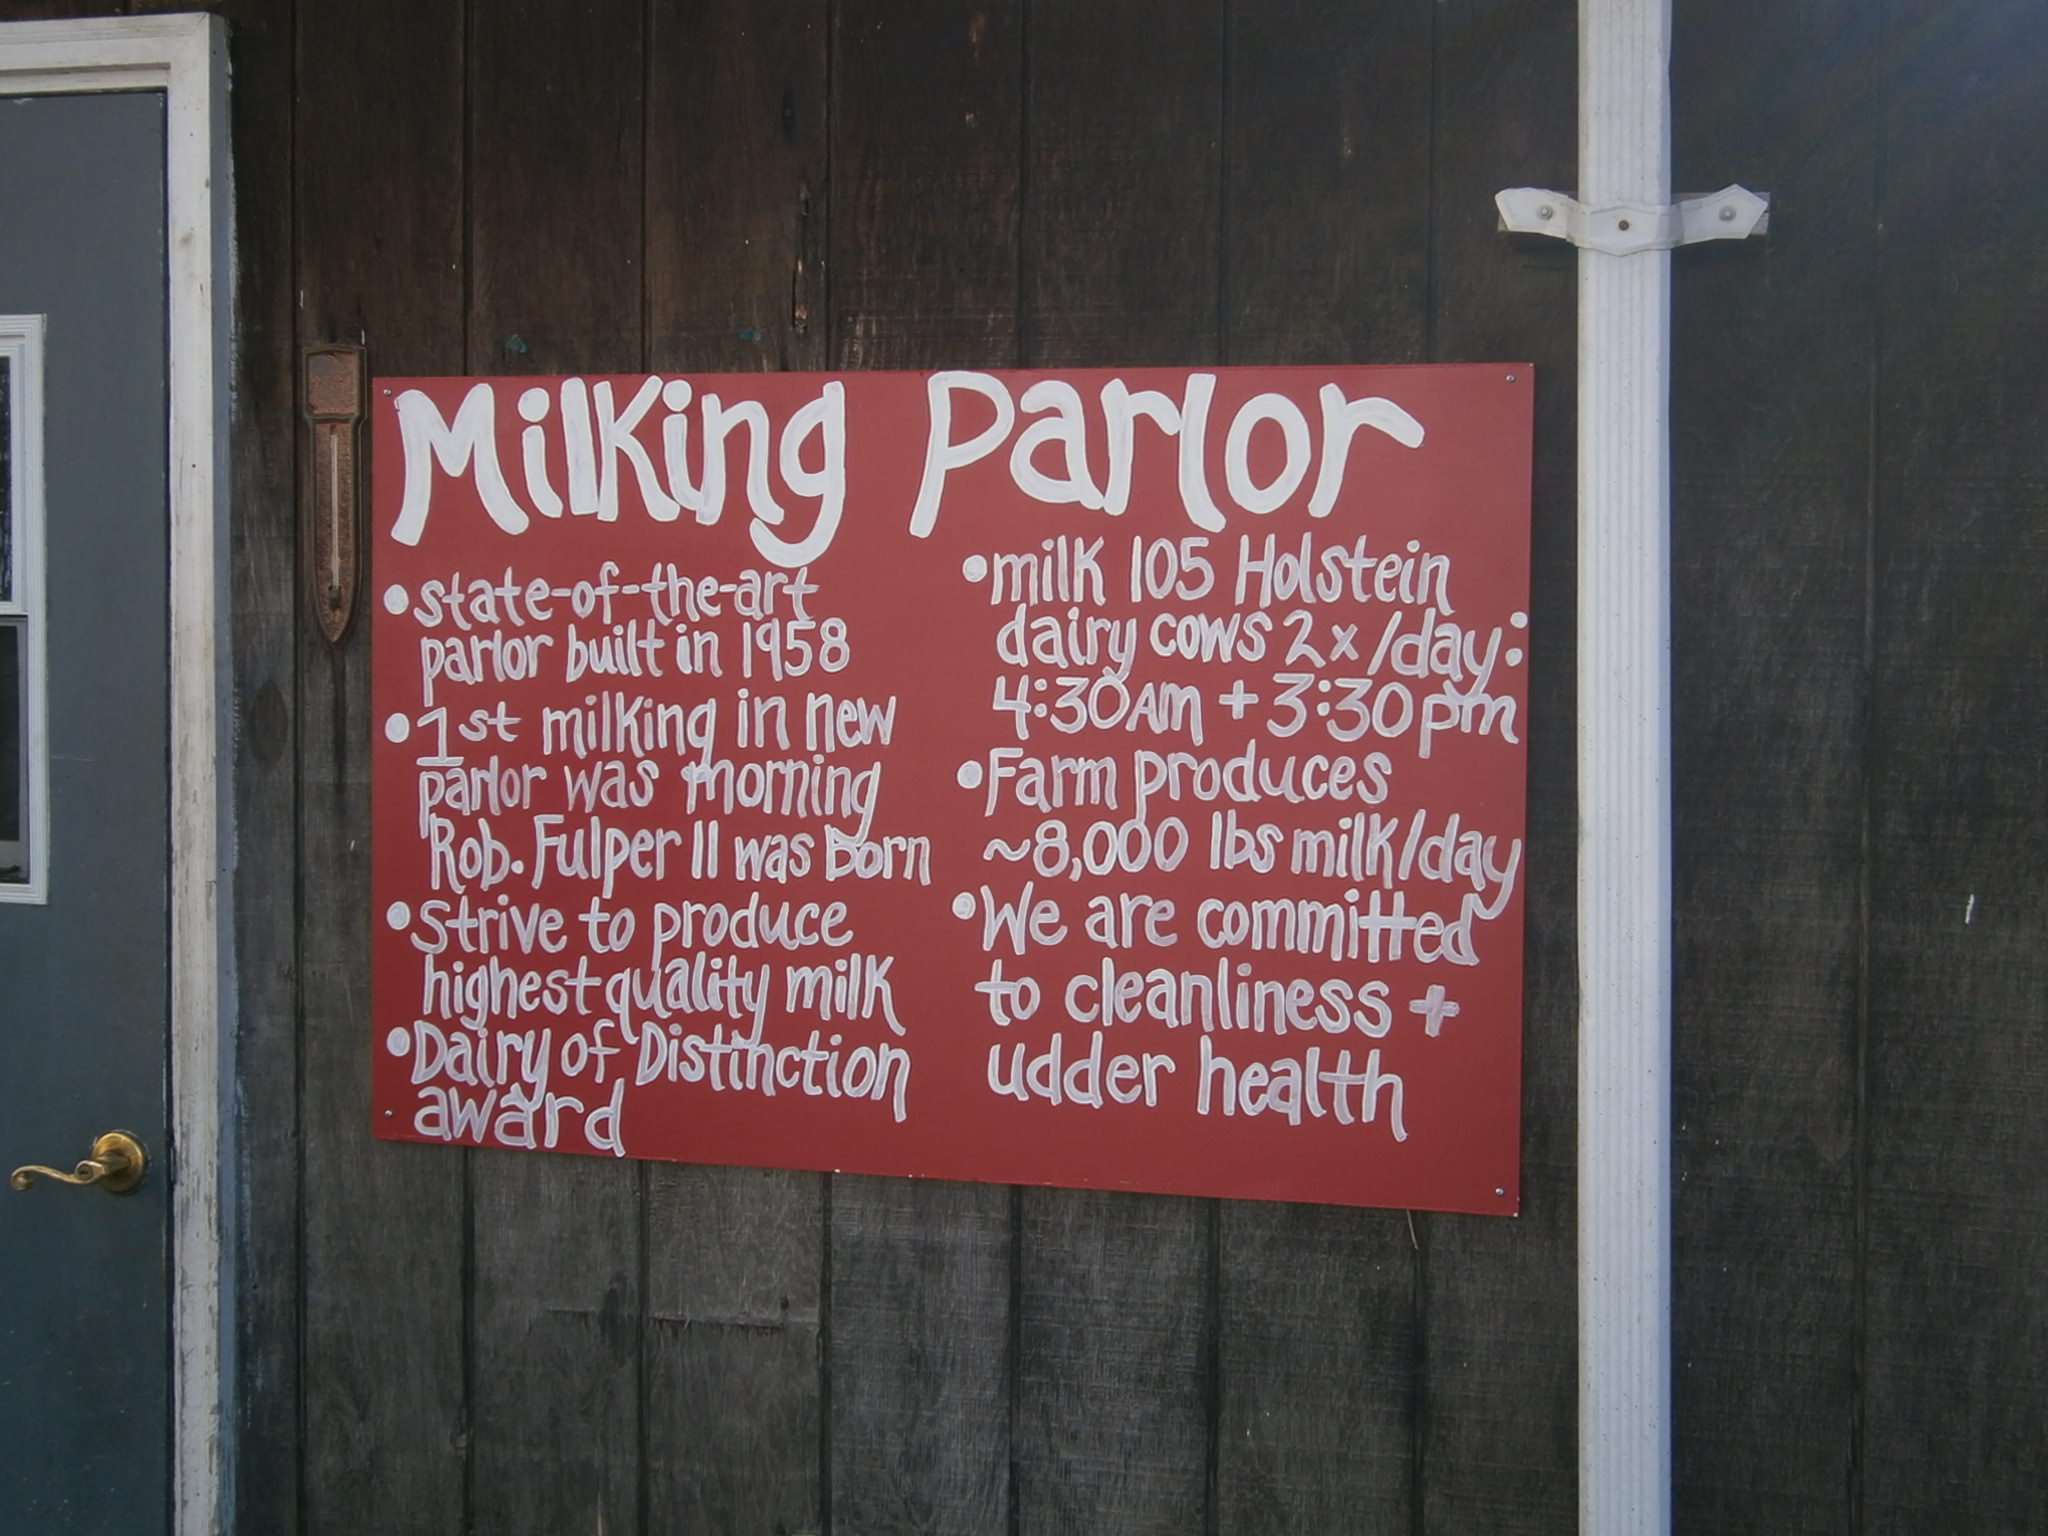 Milking Parlor
• state-of-the-art
parlor built in 1958
• 1st milking in new
parlor was morning
Rob. Fulper II was born
• Strive to produce
highest quality milk
• Dairy of Distinction
award
• milk 105 Holstein
dairy cows 2x/day:
4:30AM + 3:30pm
• Farm produces
~8,000 lbs milk/day
• We are committed
to cleanliness +
udder health